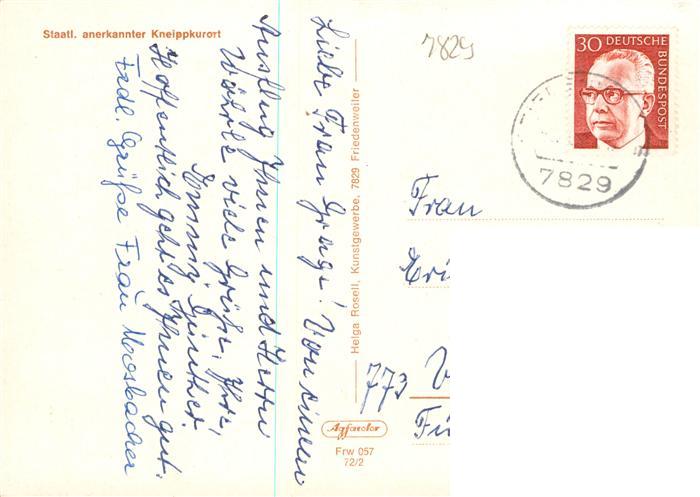 Staatl. anerkannter Kneippkurort
Liebe Frau Grage! Von einem
Ausflug Ihnen und Herrn
Wöhrle viele Grüße, Ihre
Günther
Hoffentlich geht es Ihnen gut.
Frdl. Grüße Frau Moosbacher
Helga Rosell, Kunstgewerbe, 7829 Friedenweiler
Agfacolor
Frw 057
72/2
7829
30 DEUTSCHE
BUNDESPOST
7829
Frau
Eri
773 V
Fü